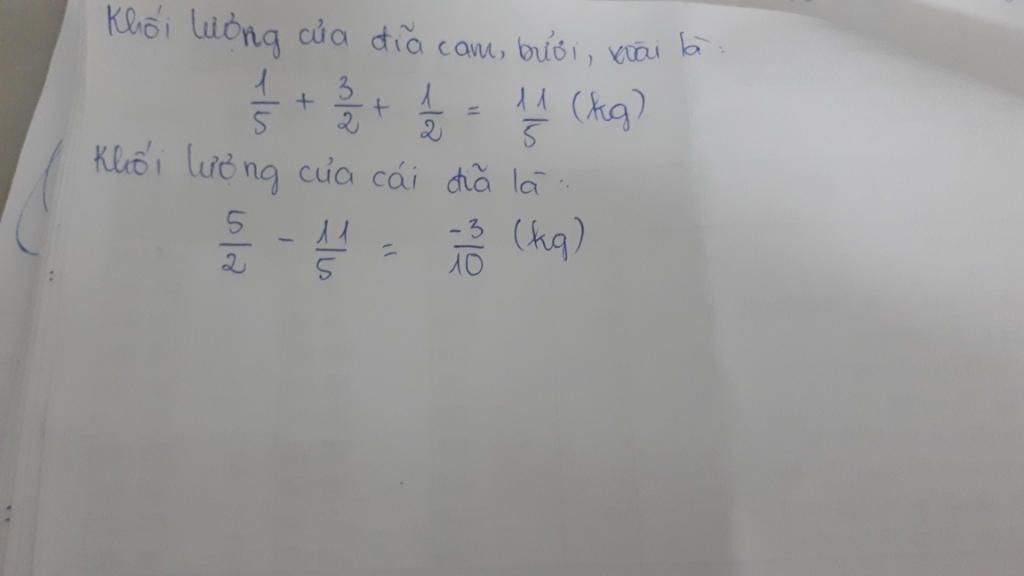 Khối lượng của đĩa cam, bưởi, xoài là:
1/5 + 3/2 + 1/2 = 11/5 (kg)
Khối lượng của cái đĩa là:
5/2 - 11/5 = -3/10 (kg)